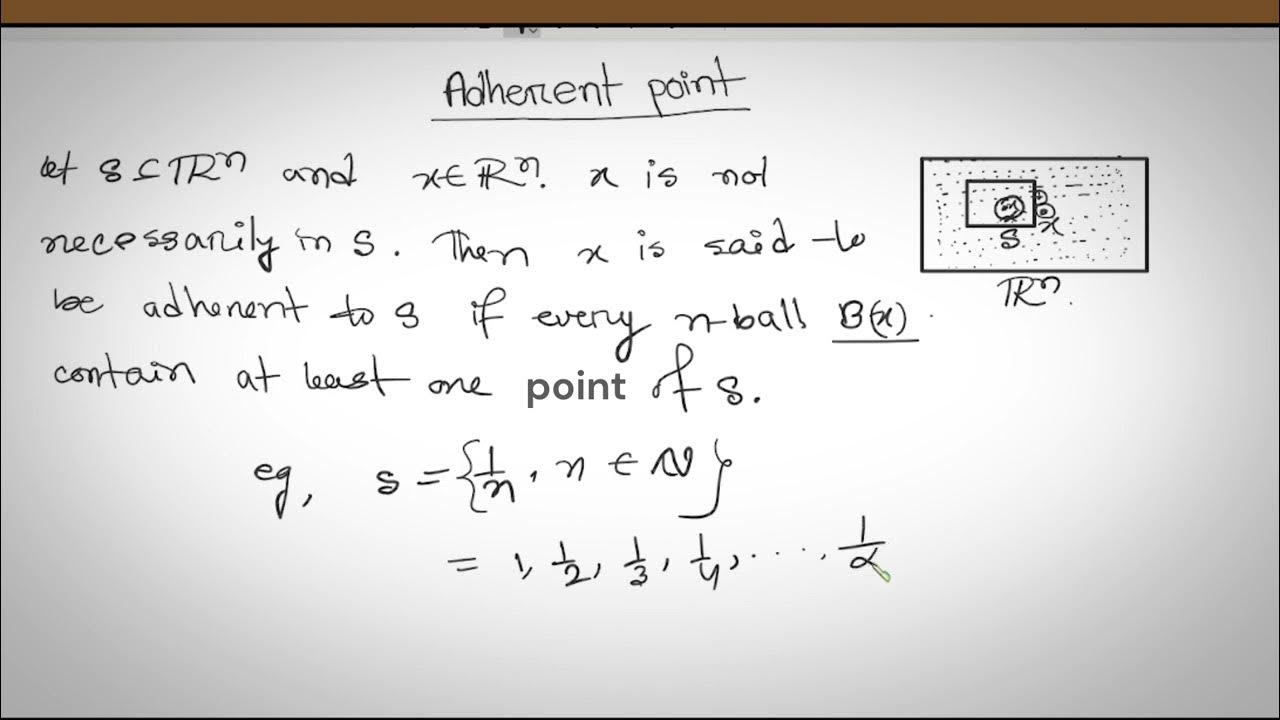 Adherent point
let S ⊆ ℝⁿ and x ∈ ℝⁿ. x is not
necessarily in S. Then x is said to
be adherent to S if every n-ball B(x)
contain at least one point of S.
S x
ℝⁿ.
eg, S = {1/n, n ∈ ℕ}
= 1, 1/2, 1/3, 1/4, ...., 1/α